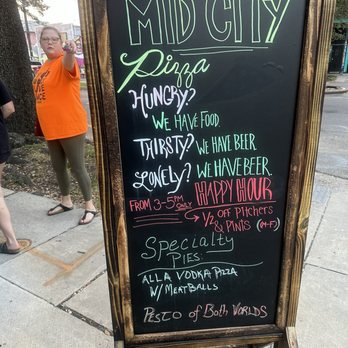 MID CITY
Pizza
HUNGRY?
WE HAVE FOOD.
THIRSTY? WE HAVE BEER.
LONELY? WE HAVE BEER.
HAPPY HOUR
FROM 3-5PM ONLY
1/2 OFF PITCHERS
& PINTS (M-F)
Specialty
PIES:
ALLA VODKA PIZZA
W/ MEATBALLS
PESTO OF BOTH WORLDS